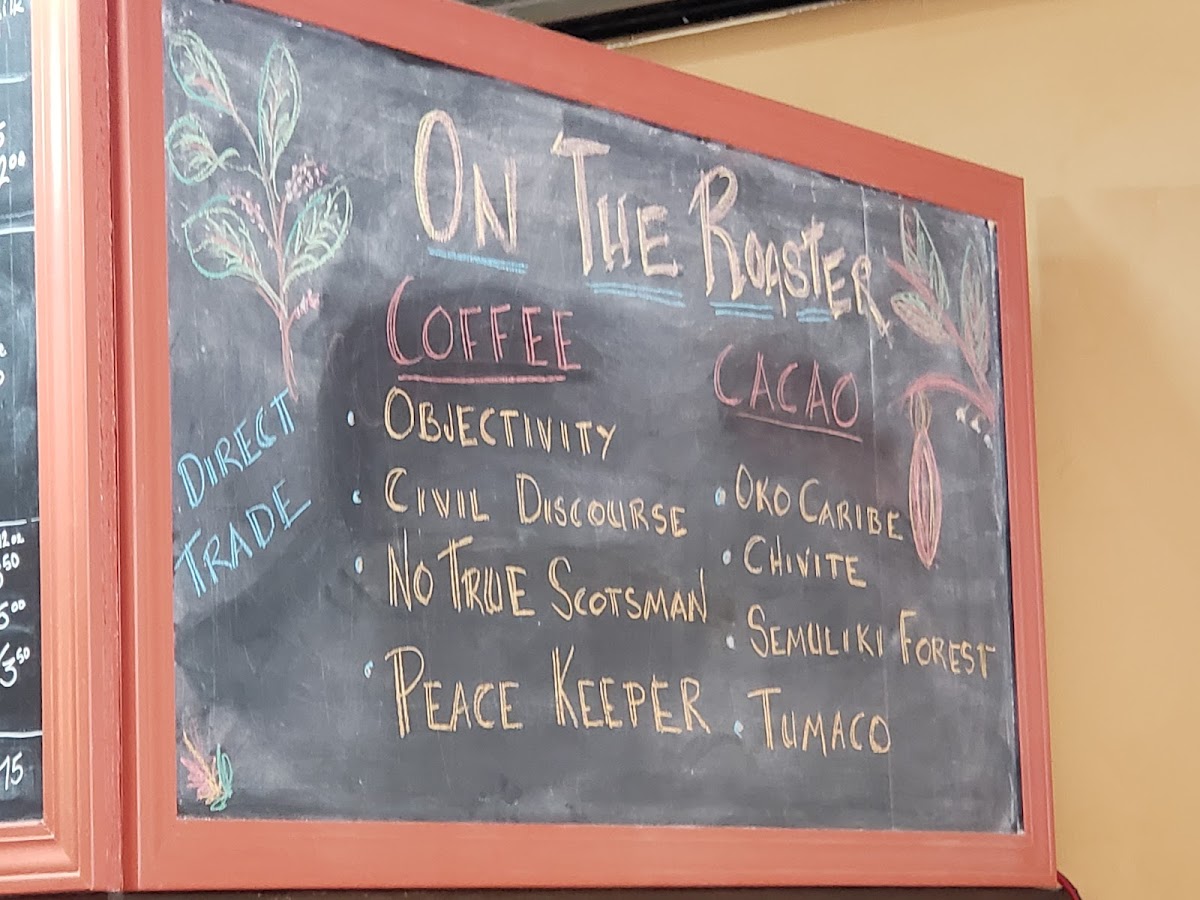 ON THE ROASTER
COFFEE
OBJECTIVITY
CIVIL DISCOURSE
NO TRUE SCOTSMAN
PEACE KEEPER
CACAO
OKO CARIBE
CHIVITE
SEMULIKI FOREST
TUMACO
DIRECT
TRADE
12 oz
50
5.00
3.50
15